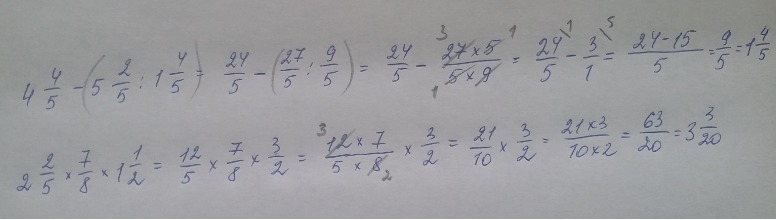 4 4/5 - (5 2/5 : 1 4/5) = 24/5 - (27/5 : 9/5) = 24/5 - 27×5/5×9 3 1 1 = 24/5 1 - 3/1 5 = 24-15/5 = 9/5 = 1 4/5
2 2/5 × 7/8 × 1 1/2 = 12/5 × 7/8 × 3/2 = 12×7/5×8 3 2 × 3/2 = 21/10 × 3/2 = 21×3/10×2 = 63/20 = 3 3/20